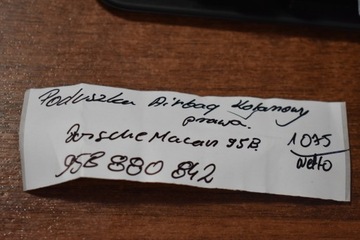 Poduszka Airbag Kolanowy
prawa.
Porsche Macan 95B.
95B 880 842
1075
netto